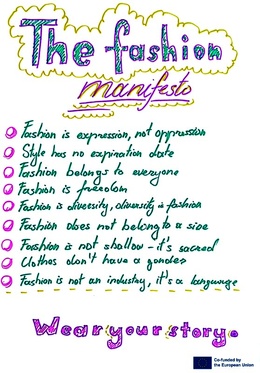 The fashion
manifesto
Fashion is expression, not oppression
Style has no expiration date
Fashion belongs to everyone
Fashion is freedom
Fashion is diversity, diversity is fashion
Fashion does not belong to a size
Fashion is not shallow - it's sacred
Clothes don't have a gender
Fashion is not an industry, it's a language
Wear your story.
Co-funded by
the European Union